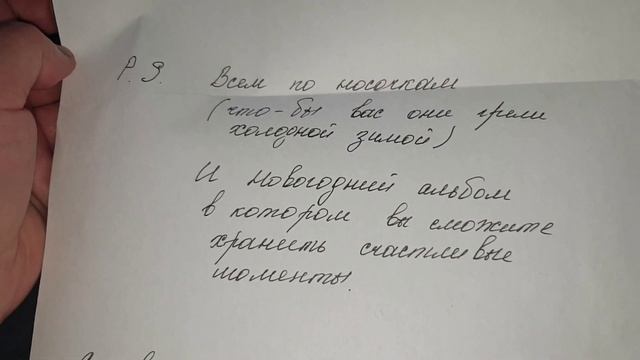 P. S. Всем по носочкам
(что-бы вас они грели
холодной зимой)
И новогодний альбом
в котором вы сможите
хранить счастливые
моменты.